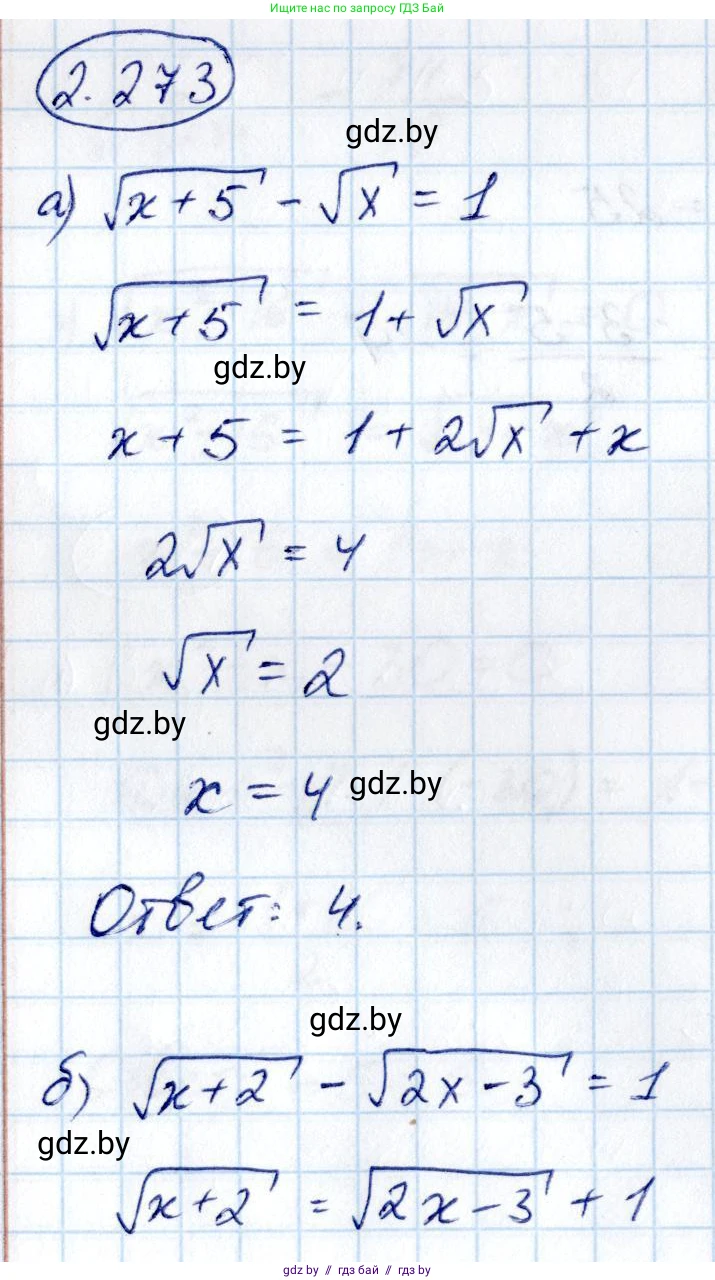 Ищите нас по запросу ГДЗ Бай
2.273
gdz.by
а) √(x+5) - √x = 1
√(x+5) = 1+√x
gdz.by
x+5 = 1+2√x+x
2√x = 4
√x = 2
gdz.by
x = 4
gdz.by
Ответ: 4.
gdz.by
б) √(x+2) - √(2x-3) = 1
gdz.by
√(x+2) = √(2x-3) + 1
gdz by // гдз бай // гдз by